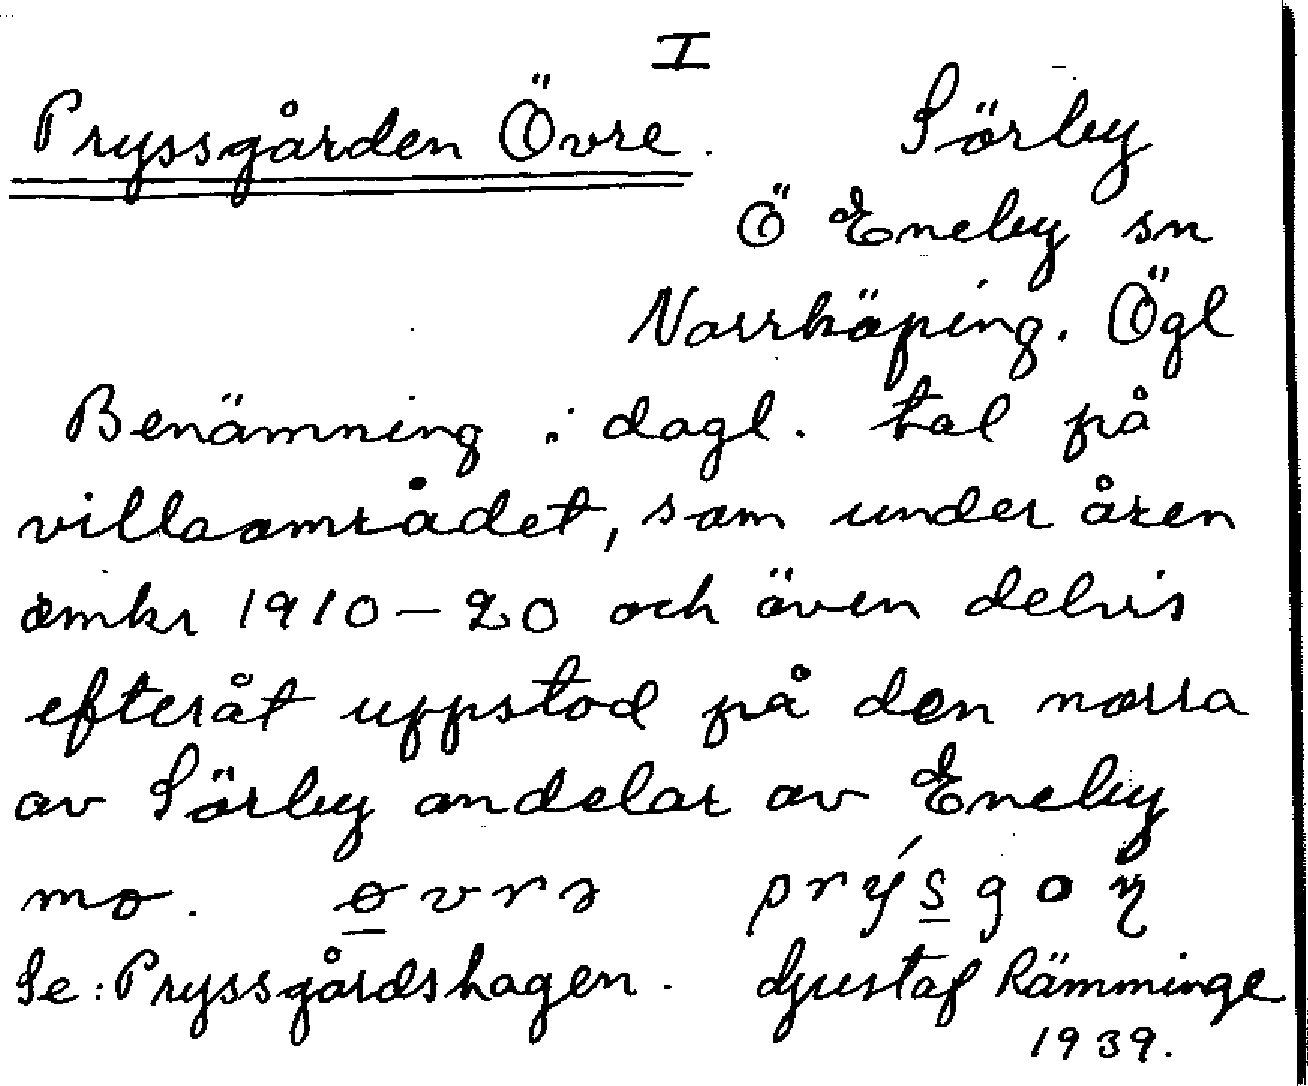 I
Pryssgården Övre. Sörby
Ö Eneby sn
Norrköping. Ögl
Benämning i dagl. tal på
villaområdet, som under åren
omkr 1910-20 och även delvis
efteråt uppstod på den norra
av Sörby andelar av Eneby
mo. øvrə prýsgoɳ
Se: Pryssgårdshagen. Gustaf Rämminge
1939.